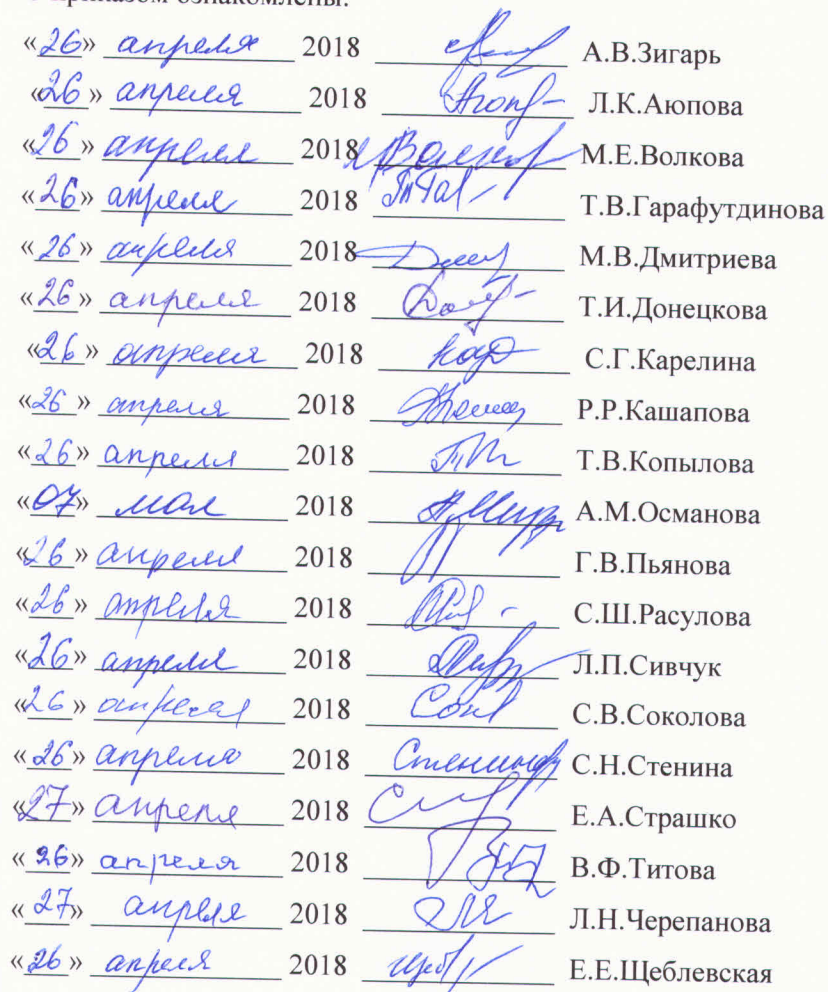 приказом ознакомлены:
«26» апреля 2018 А.В.Зигарь
«26» апреля 2018 Л.К.Аюпова
«26» апреля 2018 М.Е.Волкова
«26» апреля 2018 Т.В.Гарафутдинова
«26» апреля 2018 М.В.Дмитриева
«26» апреля 2018 Т.И.Донецкова
«26» апреля 2018 С.Г.Карелина
«26» апреля 2018 Р.Р.Кашапова
«26» апреля 2018 Т.В.Копылова
«07» мая 2018 А.М.Османова
«26» апреля 2018 Г.В.Пьянова
«26» апреля 2018 С.Ш.Расулова
«26» апреля 2018 Л.П.Сивчук
«26» апреля 2018 С.В.Соколова
«26» апреля 2018 С.Н.Стенина
«27» апреля 2018 Е.А.Страшко
«26» апреля 2018 В.Ф.Титова
«27» апреля 2018 Л.Н.Черепанова
«26» апреля 2018 Е.Е.Щеблевская